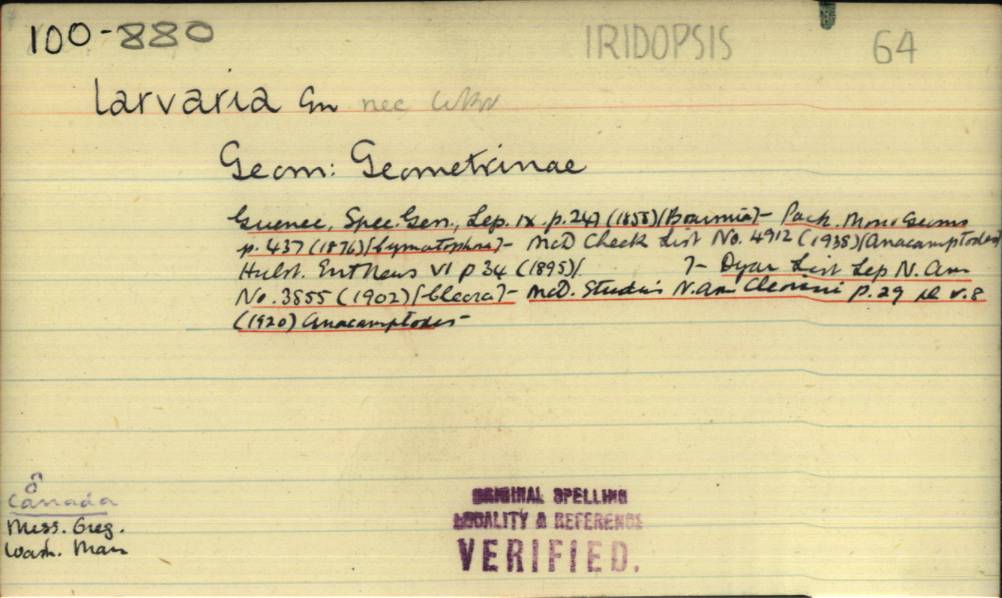 100-880 IRIDOPSIS 64
larvaria Gn nec
Geom: Geometrinae
Guenee, Spec. Gen., Lep. ix. p.247 (1858)[Boarmia]- Pack. Mono Geoms
p. 437 (1876)[Cymatophora]- McD Check List No. 4912 (1938)[Anacamptodes]
Hulst. Ent News VI p 34 (1895)[ ]- Dyar List Lep N. Am
No. 3855 (1902)[Cleora]- McD. Studies N. Am Cleorini p. 29 v. 8
(1920) Anacamptodes-
♂
Canada
Mass. Greg.
Wash. Man
ORIGINAL SPELLING
LOCALITY & REFERENCE
VERIFIED.